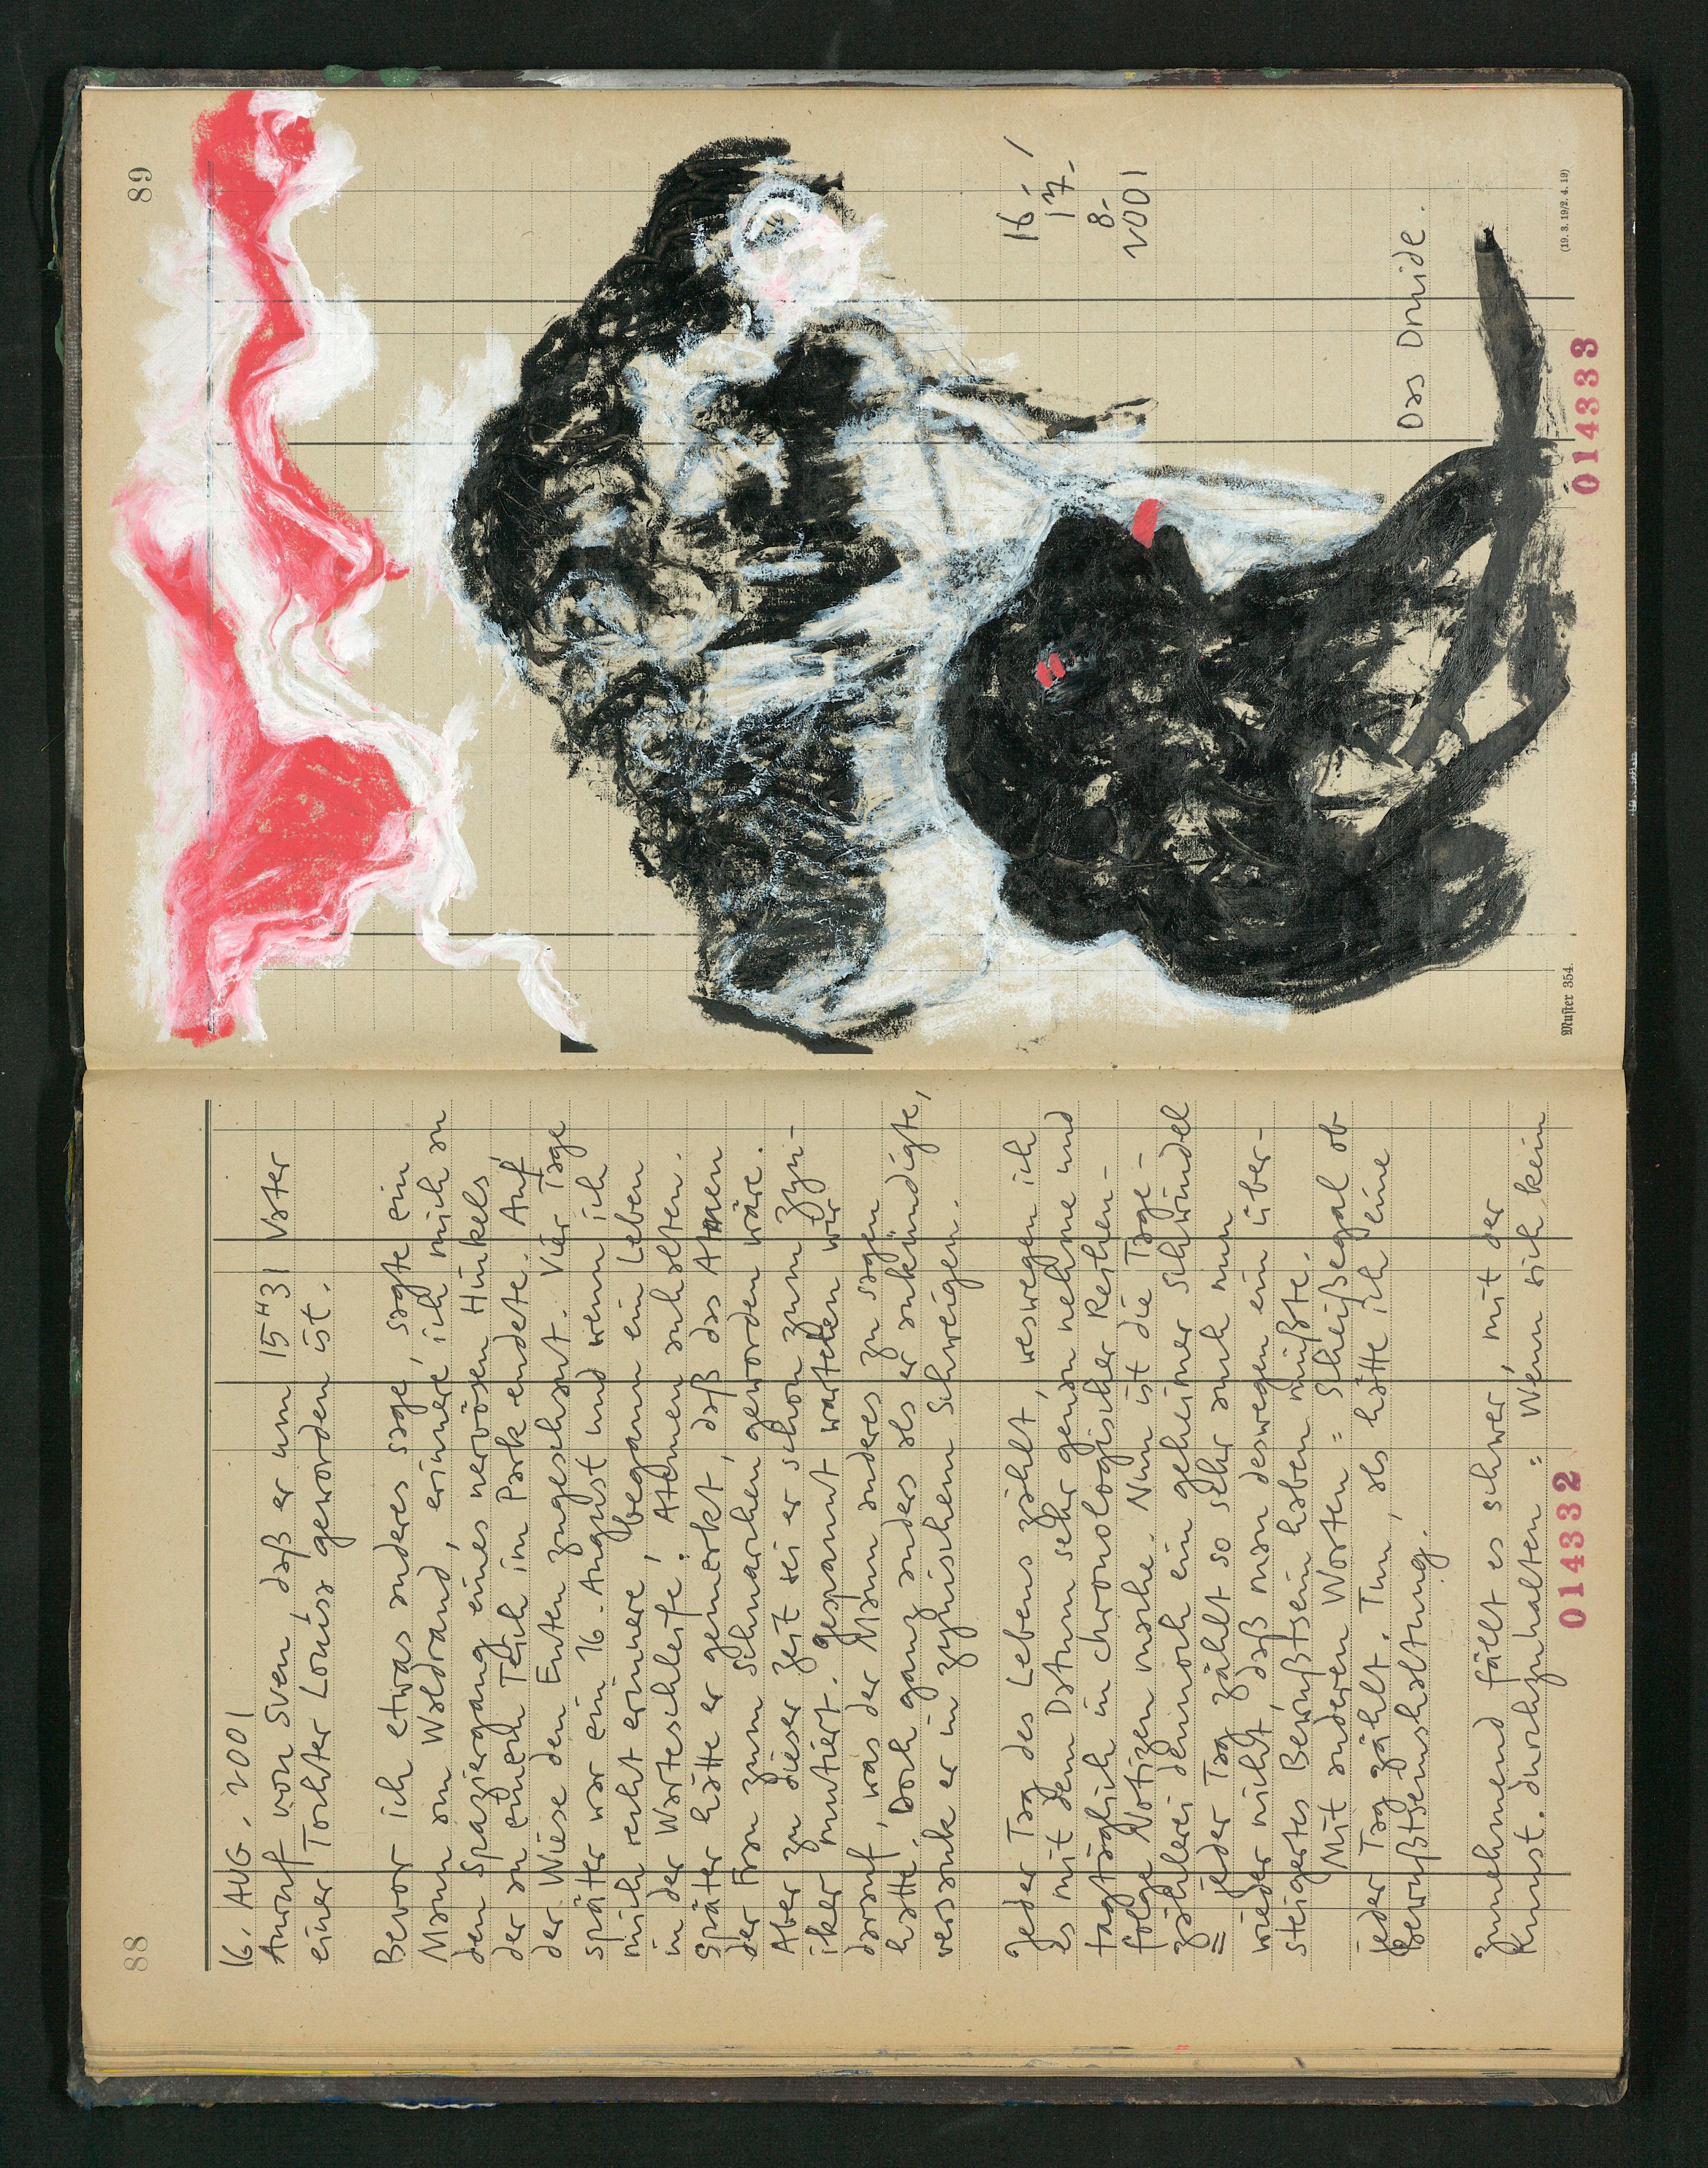 88
16. AUG. 2001
Anruf von Sven, daß er um 15 H 31 Vater
einer Tochter Louisa geworden ist.
Bevor ich etwas anderes sage, sagte ein
Mann am Waldrand, erinnere ich mich an
den Spaziergang eines nervösen Hinkels,
der an einem Teich im Park endete. Auf
der Wiese den Enten zugeschaut. Vier Tage
später war ein 16. August und wenn ich
mich recht erinnere, begann ein Leben
in der Warteschleife. Atemen anhalten.
Später hätte er gemerkt, daß das Atmen
der Frau zum Schnarchen geworden wäre.
Aber zu dieser Zeit sei er schon zum Zyn-
iker mutiert. Gespannt warteten wir
darauf, was der Mann anderes zu sagen
hatte. Doch ganz anders als er ankündigte,
versank er in zynischem Schweigen.
Jeder Tag des Lebens zählt, weswegen ich
es mit dem Datum sehr genau nehme und
tagtäglich in chronologischer Reihen-
folge Notizen mache. Nun ist die Tage-
zählerei dennoch ein geheimer Schwindel
= jeder Tag zählt so sehr auch nun
wieder nicht, daß man deswegen ein über-
steigertes Bewußtsein haben müßte.
Mit anderen Worten = Scheißegal ob
jeder Tag zählt. Tun, als hätte ich eine
Bewußtseinshaltung.
Zunehmend fällt es schwer, mit der
Kunst durchzuhalten = Wenn sich kein
014332
89
16-/
17-
8-
2001
Das Druide.
Muster 354.
(19. 3. 19/2. 4. 19)
014333